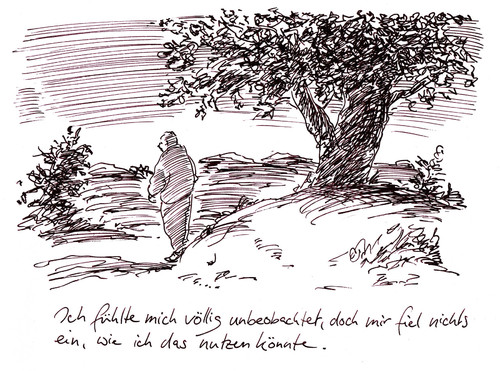 Ich fühlte mich völlig unbeobachtet, doch mir fiel nichts
ein, wie ich das nutzen könnte.